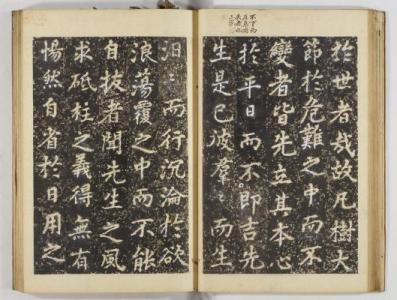 於世者哉故凡樹大
節於危難之中而不
變者皆先立其本心
於平日而不即吉先
生是已彼羣〻而生
汨〻而行沉淪於欲
浪蕩覆之中而不能
自拔者聞先生之風
求砥柱之義得無有
惕然自省於日用之